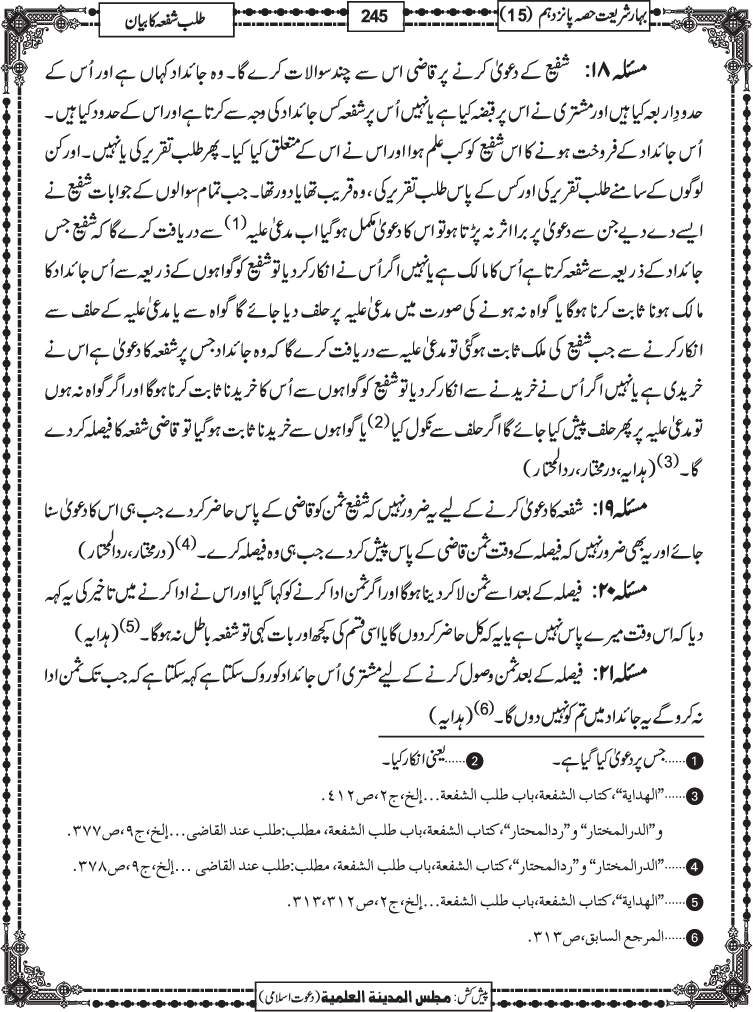 بہارشریعت حصہ پانزدہم (15)
245
طلب شفعہ کا بیان
مسئلہ ۱۸: شفیع کے دعویٰ کرنے پر قاضی اس سے چند سوالات کرے گا۔ وہ جائداد کہاں ہے اور اُس کے
حدودِ اربعہ کیا ہیں اور مشتری نے اس پر قبضہ کیا ہے یا نہیں اُس پر شفعہ کس جائداد کی وجہ سے کرتا ہے اور اس کے حدود کیا ہیں۔
اُس جائداد کے فروخت ہونے کا اس شفیع کو کب علم ہوا اور اس نے اس کے متعلق کیا کیا۔ پھر طلب تقریر کی یا نہیں۔ اور کن
لوگوں کے سامنے طلب تقریر کی اور کس کے پاس طلب تقریر کی، وہ قریب تھا یا دور تھا۔ جب تمام سوالوں کے جوابات شفیع نے
ایسے دے دیے جن سے دعویٰ پر برا اثر نہ پڑتا ہو تو اس کا دعویٰ مکمل ہوگیا اب مدعیٰ علیہ(1) سے دریافت کرے گا کہ شفیع جس
جائداد کے ذریعہ سے شفعہ کرتا ہے اُس کا مالک ہے یا نہیں اگر اُس نے انکار کردیا تو شفیع کو گواہوں کے ذریعہ سے اُس جائداد کا
مالک ہونا ثابت کرنا ہوگا یا گواہ نہ ہونے کی صورت میں مدعیٰ علیہ پر حلف دیا جائے گا گواہ سے یا مدعیٰ علیہ کے حلف سے
انکار کرنے سے جب شفیع کی ملک ثابت ہوگئی تو مدعیٰ علیہ سے دریافت کرے گا کہ وہ جائداد جس پر شفعہ کا دعویٰ ہے اس نے
خریدی ہے یا نہیں اگر اُس نے خریدنے سے انکار کردیا تو شفیع کو گواہوں سے اُس کا خریدنا ثابت کرنا ہوگا اور اگر گواہ نہ ہوں
تو مدعیٰ علیہ پر پھر حلف پیش کیا جائے گا اگر حلف سے نکول کیا(2) یا گواہوں سے خریدنا ثابت ہوگیا تو قاضی شفعہ کا فیصلہ کردے
گا۔(3) (ہدایہ، درمختار، ردالمحتار)
مسئلہ ۱۹: شفعہ کا دعویٰ کرنے کے لیے یہ ضرور نہیں کہ شفیع ثمن کو قاضی کے پاس حاضر کردے جب ہی اس کا دعویٰ سنا
جائے اور یہ بھی ضرور نہیں کہ فیصلہ کے وقت ثمن قاضی کے پاس پیش کردے جب ہی وہ فیصلہ کرے۔(4) (درمختار، ردالمحتار)
مسئلہ ۲۰: فیصلہ کے بعد اسے ثمن لا کر دینا ہوگا اور اگر ثمن ادا کرنے کو کہا گیا اور اس نے ادا کرنے میں تاخیر کی یہ کہہ
دیا کہ اس وقت میرے پاس نہیں ہے یا یہ کہ کل حاضر کردوں گا یا اسی قسم کی کچھ اور بات کہی تو شفعہ باطل نہ ہوگا۔(5) (ہدایہ)
مسئلہ ۲۱: فیصلہ کے بعد ثمن وصول کرنے کے لیے مشتری اُس جائداد کو روک سکتا ہے کہہ سکتا ہے کہ جب تک ثمن ادا
نہ کروگے یہ جائداد میں تم کو نہیں دوں گا۔(6) (ہدایہ)
1......جس پر دعویٰ کیا گیا ہے۔ 2......یعنی انکار کیا۔
3......”الهداية“، كتاب الشفعة، باب طلب الشفعة...إلخ، ج٢، ص٤١٢.
و ”الدرالمختار“ و ”ردالمحتار“، كتاب الشفعة، باب طلب الشفعة، مطلب: طلب عند القاضى...إلخ، ج٩، ص٣٧٧.
4......”الدرالمختار“ و ”ردالمحتار“، كتاب الشفعة، باب طلب الشفعة، مطلب: طلب عند القاضى...إلخ، ج٩، ص٣٧٨.
5......”الهداية“، كتاب الشفعة، باب طلب الشفعة...إلخ، ج٢، ص٣١٢، ٣١٣.
6......المرجع السابق، ص٣١٣.
پیش کش: مجلس المدينة العلمية (دعوت اسلامی)